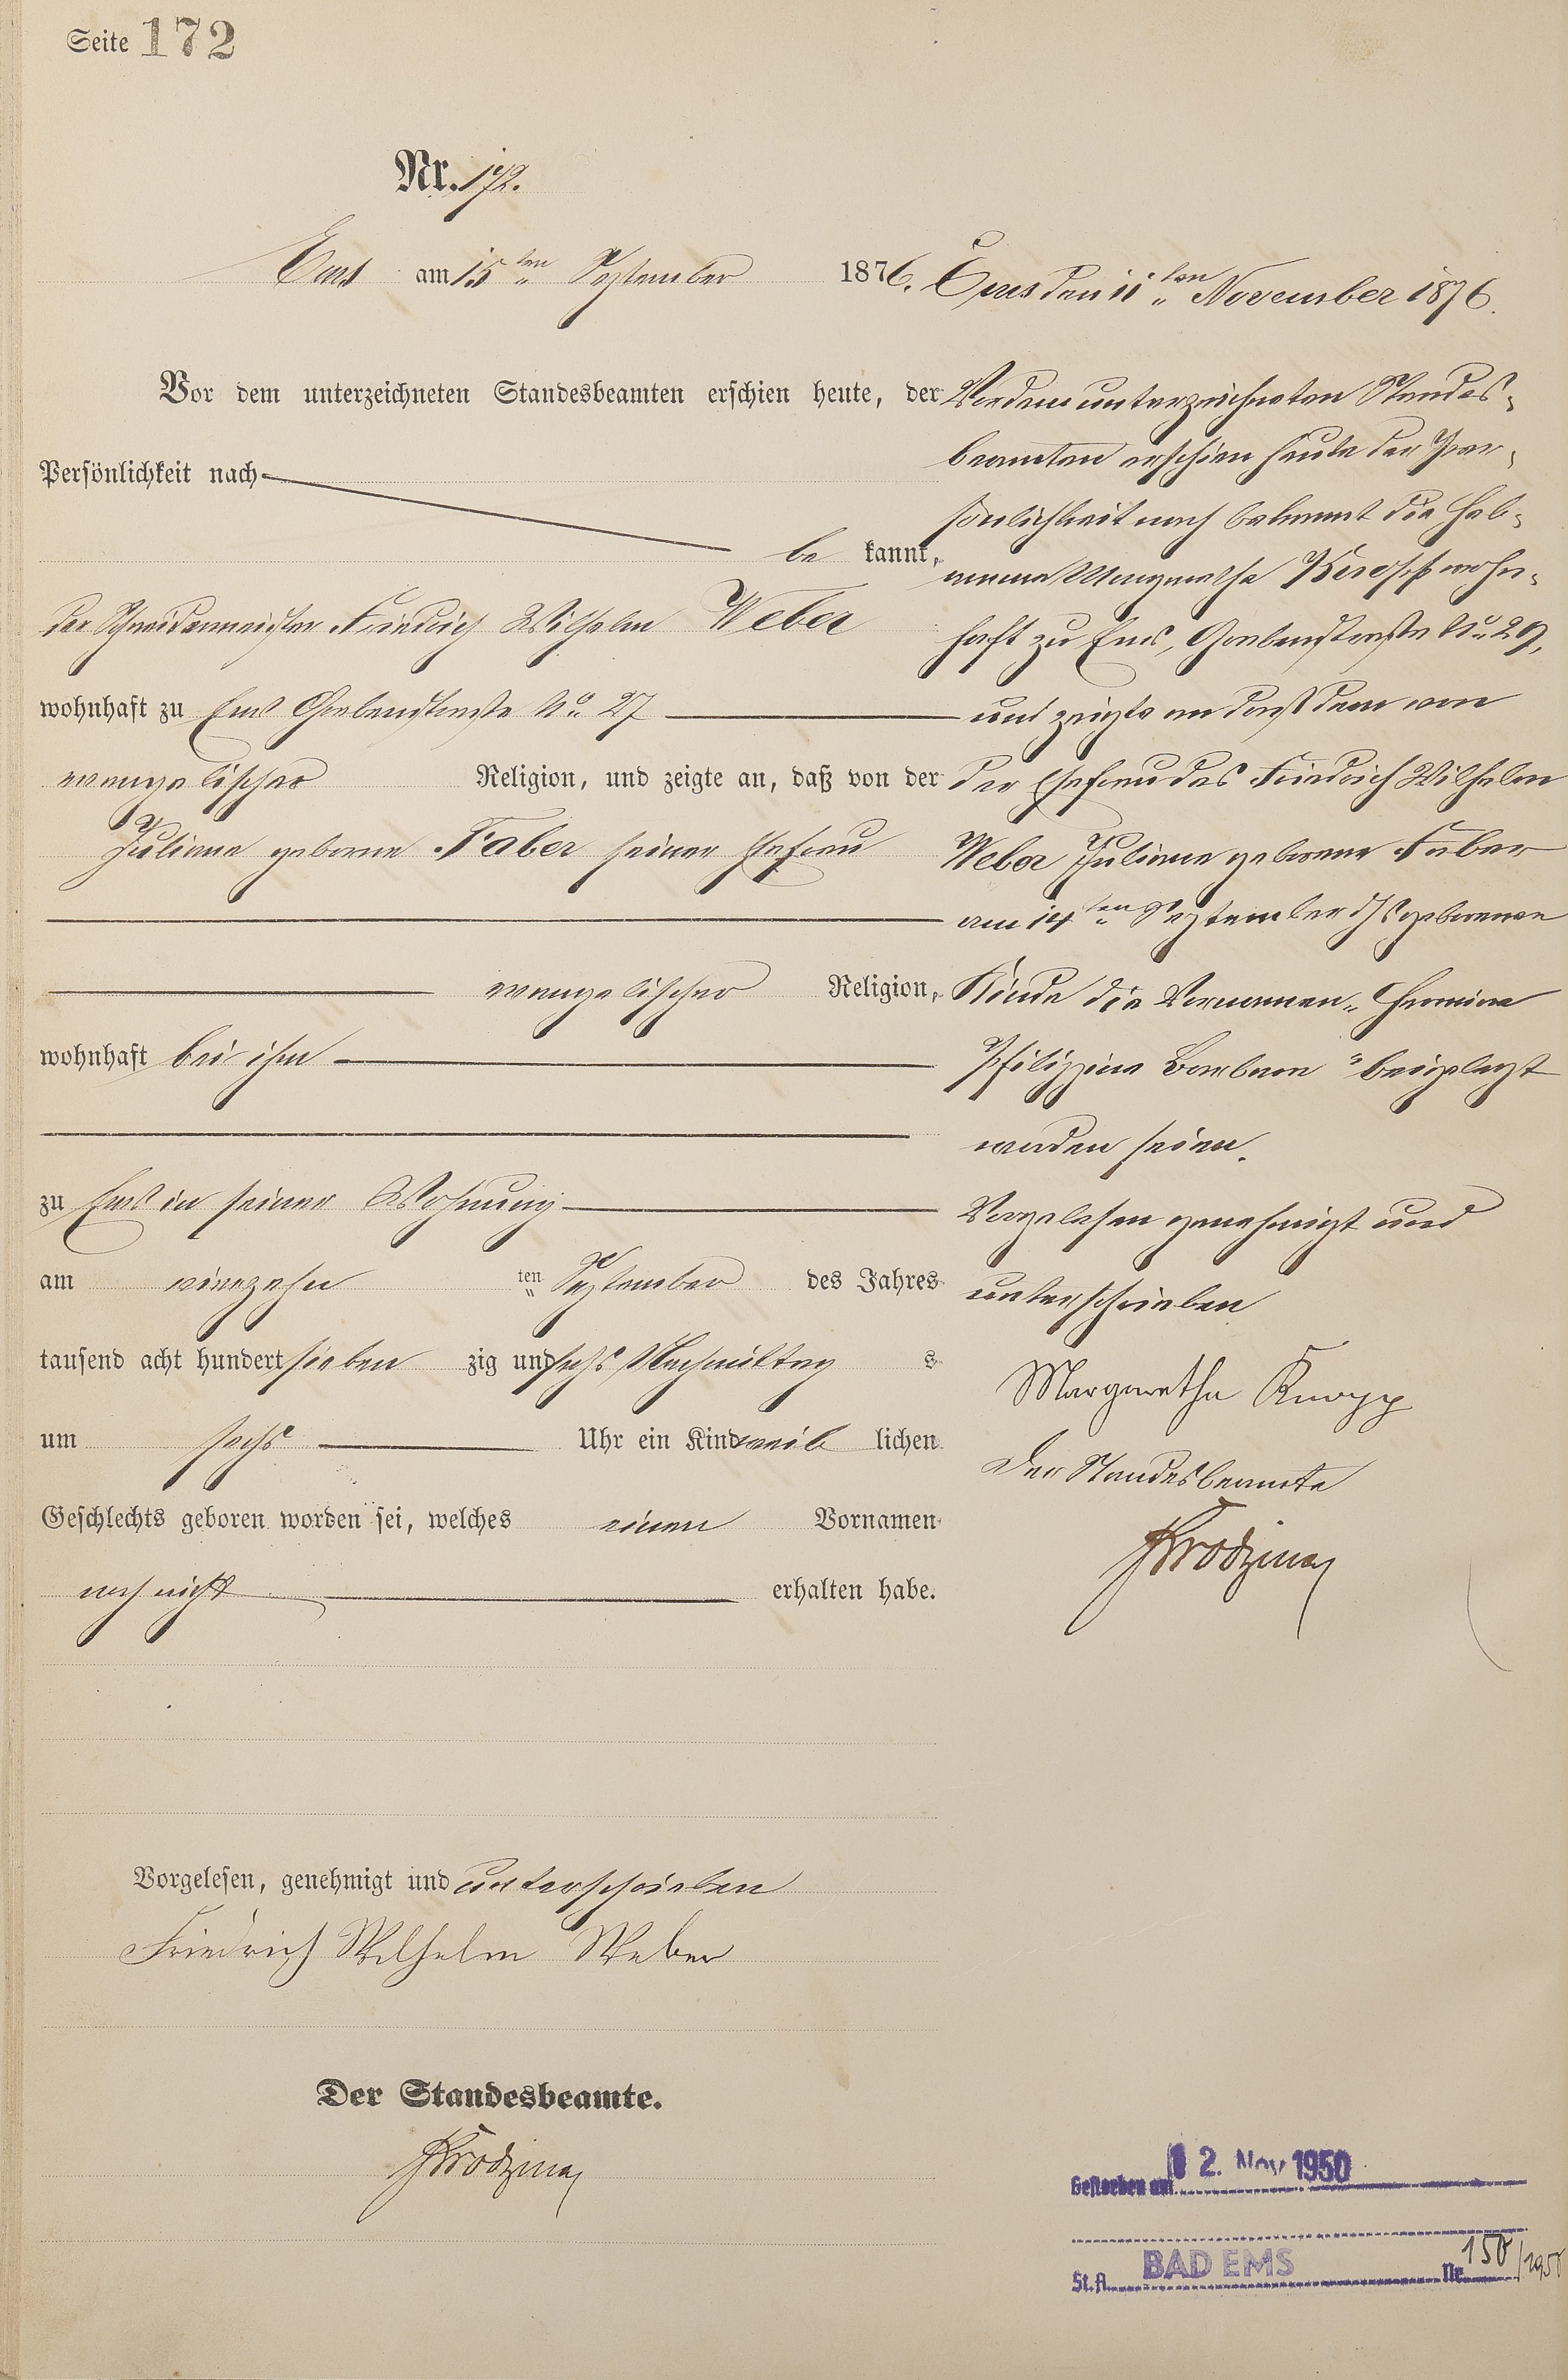 Seite 172
Nr. 172.
Ems am 15ten September 1876.
Vor dem unterzeichneten Standesbeamten erschien heute, der
Persönlichkeit nach
be kannt,
der Schneidermeister Friedrich Wilhelm Weber
wohnhaft zu Ems Grabenstraße No. 27
evangelischer Religion, und zeigte an, daß von der
Juliane geborne Faber seiner Ehefrau
evangelischer Religion,
wohnhaft bei ihm
zu Ems in seiner Wohnung
am vierzehn ten September des Jahres
tausend acht hundert sieben zig und sechs Nachmittag s
um sechs Uhr ein Kind weib lichen
Geschlechts geboren worden sei, welches einen Vornamen
noch nicht erhalten habe.
Vorgelesen, genehmigt und unterschrieben
Friedrich Wilhelm Weber
Der Standesbeamte.
Ems den 11ten November 1876.
Vor dem unterzeichneten Standes-
beamten erschien heute der Per-
sönlichkeit nach bekannt die Heb-
amme Margaretha Knopp wohn-
haft zu Ems, Grabenstraße No. 29,
und zeigte an daß dem von
der Ehefrau des Friedrich Wilhelm
Weber Juliane geborene Faber
am 14ten September d Js geborenen
Kinde die Vornamen „Hermine
Philippine Barbara“ beigelegt
worden seien.
Vorgelesen genehmigt und
unterschrieben
Margaretha Knopp
Der Standesbeamte
Gestorben am 2. Nov 1950
St.A. BAD EMS Nr. 150/1950